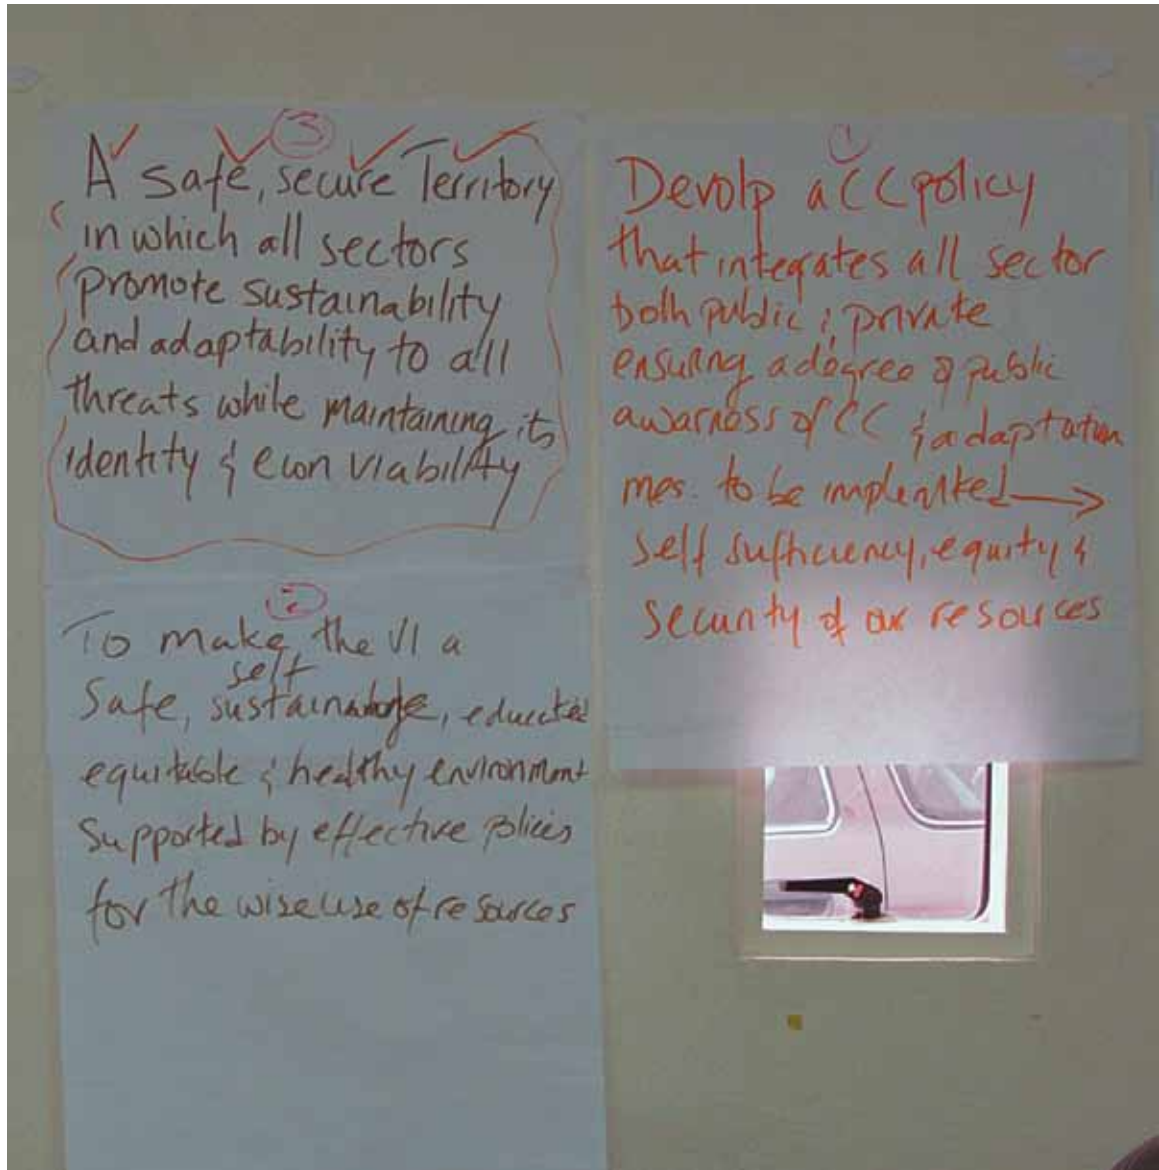 3
A safe, secure Territory
in which all sectors
promote sustainability
and adaptability to all
threats while maintaining its
identity & econ viability
2
To make the VI a
self
Safe, sustainable, educated
equitable & healthy environment
Supported by effective polices
for the wise use of resources
1
Devolp a CC policy
that integrates all sector
both public & private
ensuring a degree of public
awarness of CC & adaptation
mes. to be implemented →
self sufficiency, equity &
security of our resources